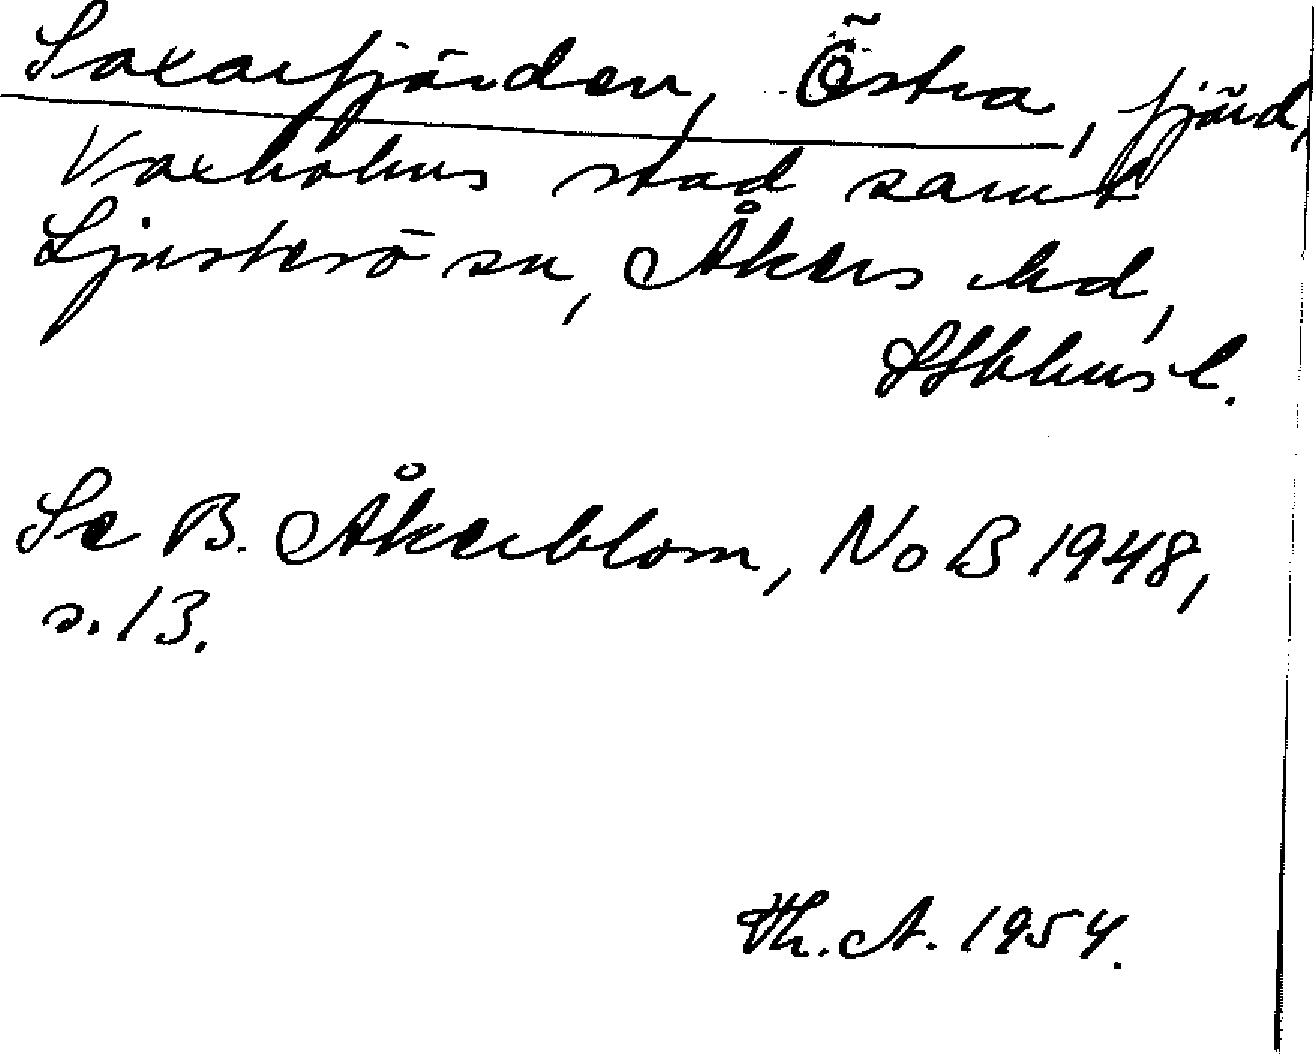 Saxarfjärden, Östra, fjärd,
Vaxholms stad samt
Ljusterö sn, Åkers hd,
Sthlms l.
Se B. Åkerblom, NoB 1948,
s. 13.
Th. A. 1954.